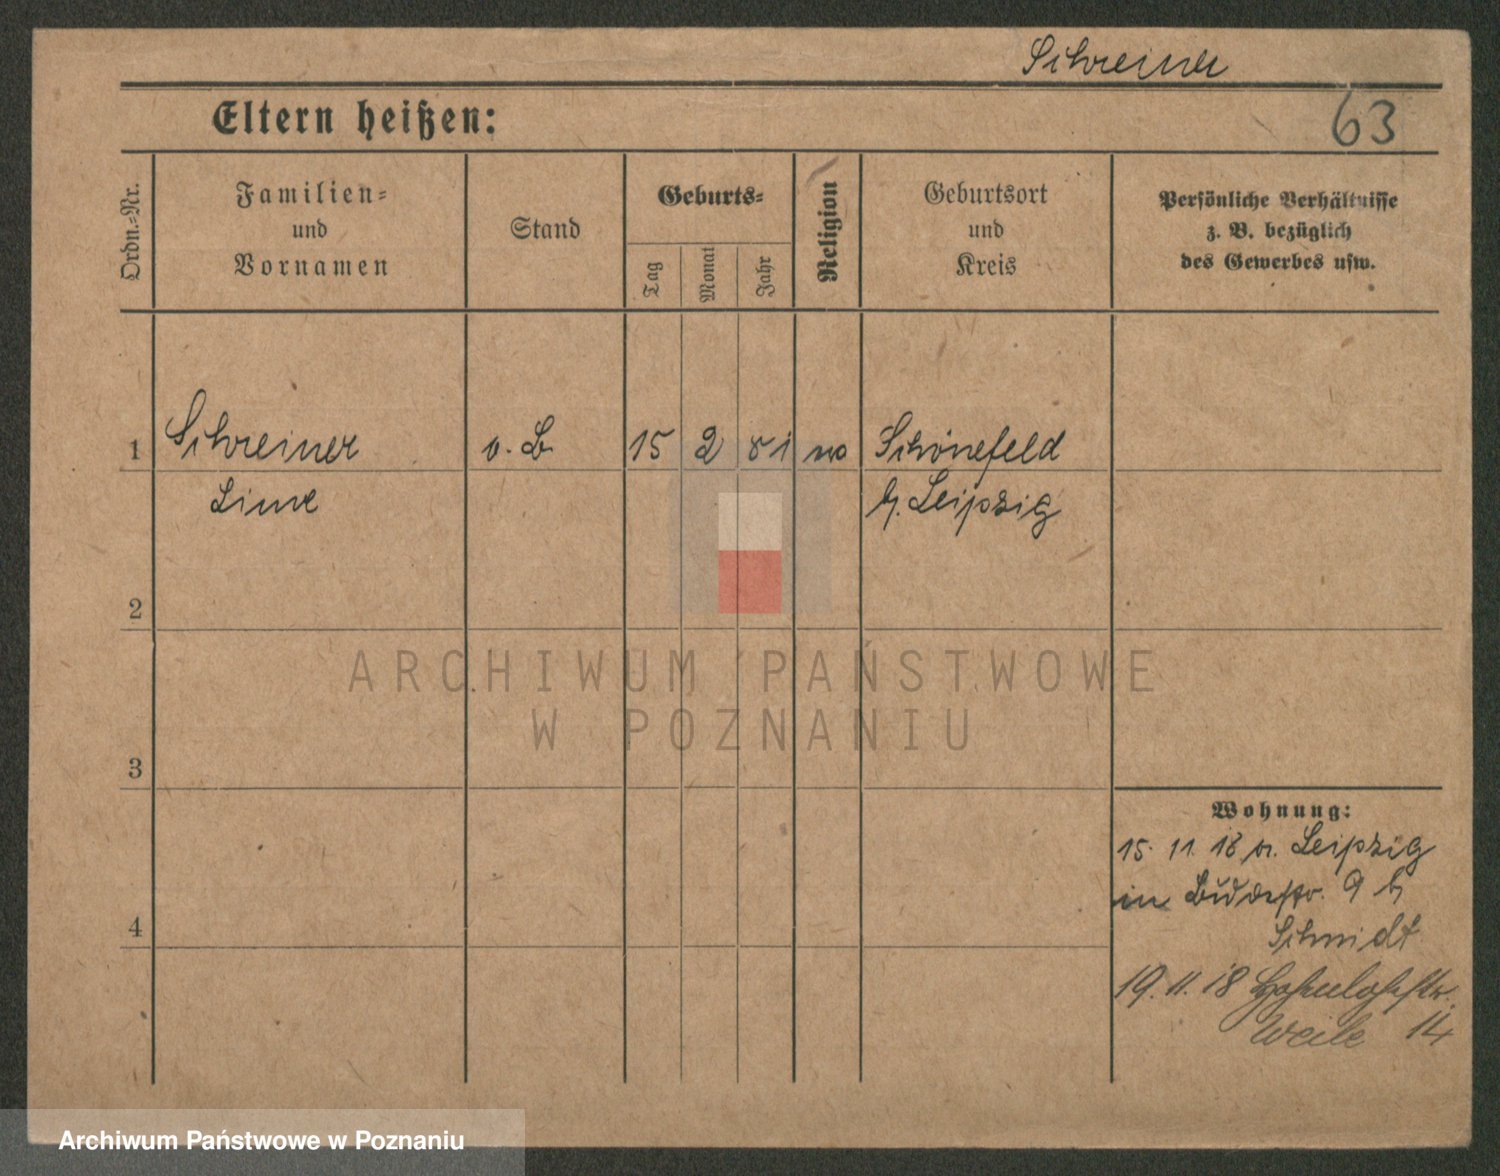 Schreiner
Eltern heißen:
63
Ordn.-Nr.
Familien-
und
Vornamen
Stand
Geburts-
Tag
Monat
Jahr
Religion
Geburtsort
und
Kreis
Persönliche Verhältnisse
z. B. bezüglich
des Gewerbes usw.
1 Schreiner o. B. 15 2 81 Schönefeld
b. Leipzig
2
ARCHIWUM PAŃSTWOWE
W POZNANIU
3
Wohnung:
15. 11. 18 v. Leipzig
in 9 b
Schmidt
4
19. 11. 18 Hohenlohestr.
Weile 14
Archiwum Państwowe w Poznaniu